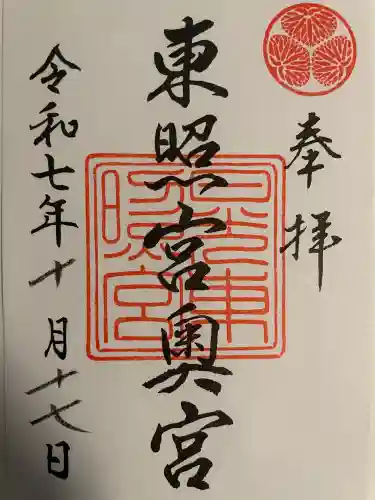 奉拝
東照宮奥宮
日光東照宮
令和七年十月十七日